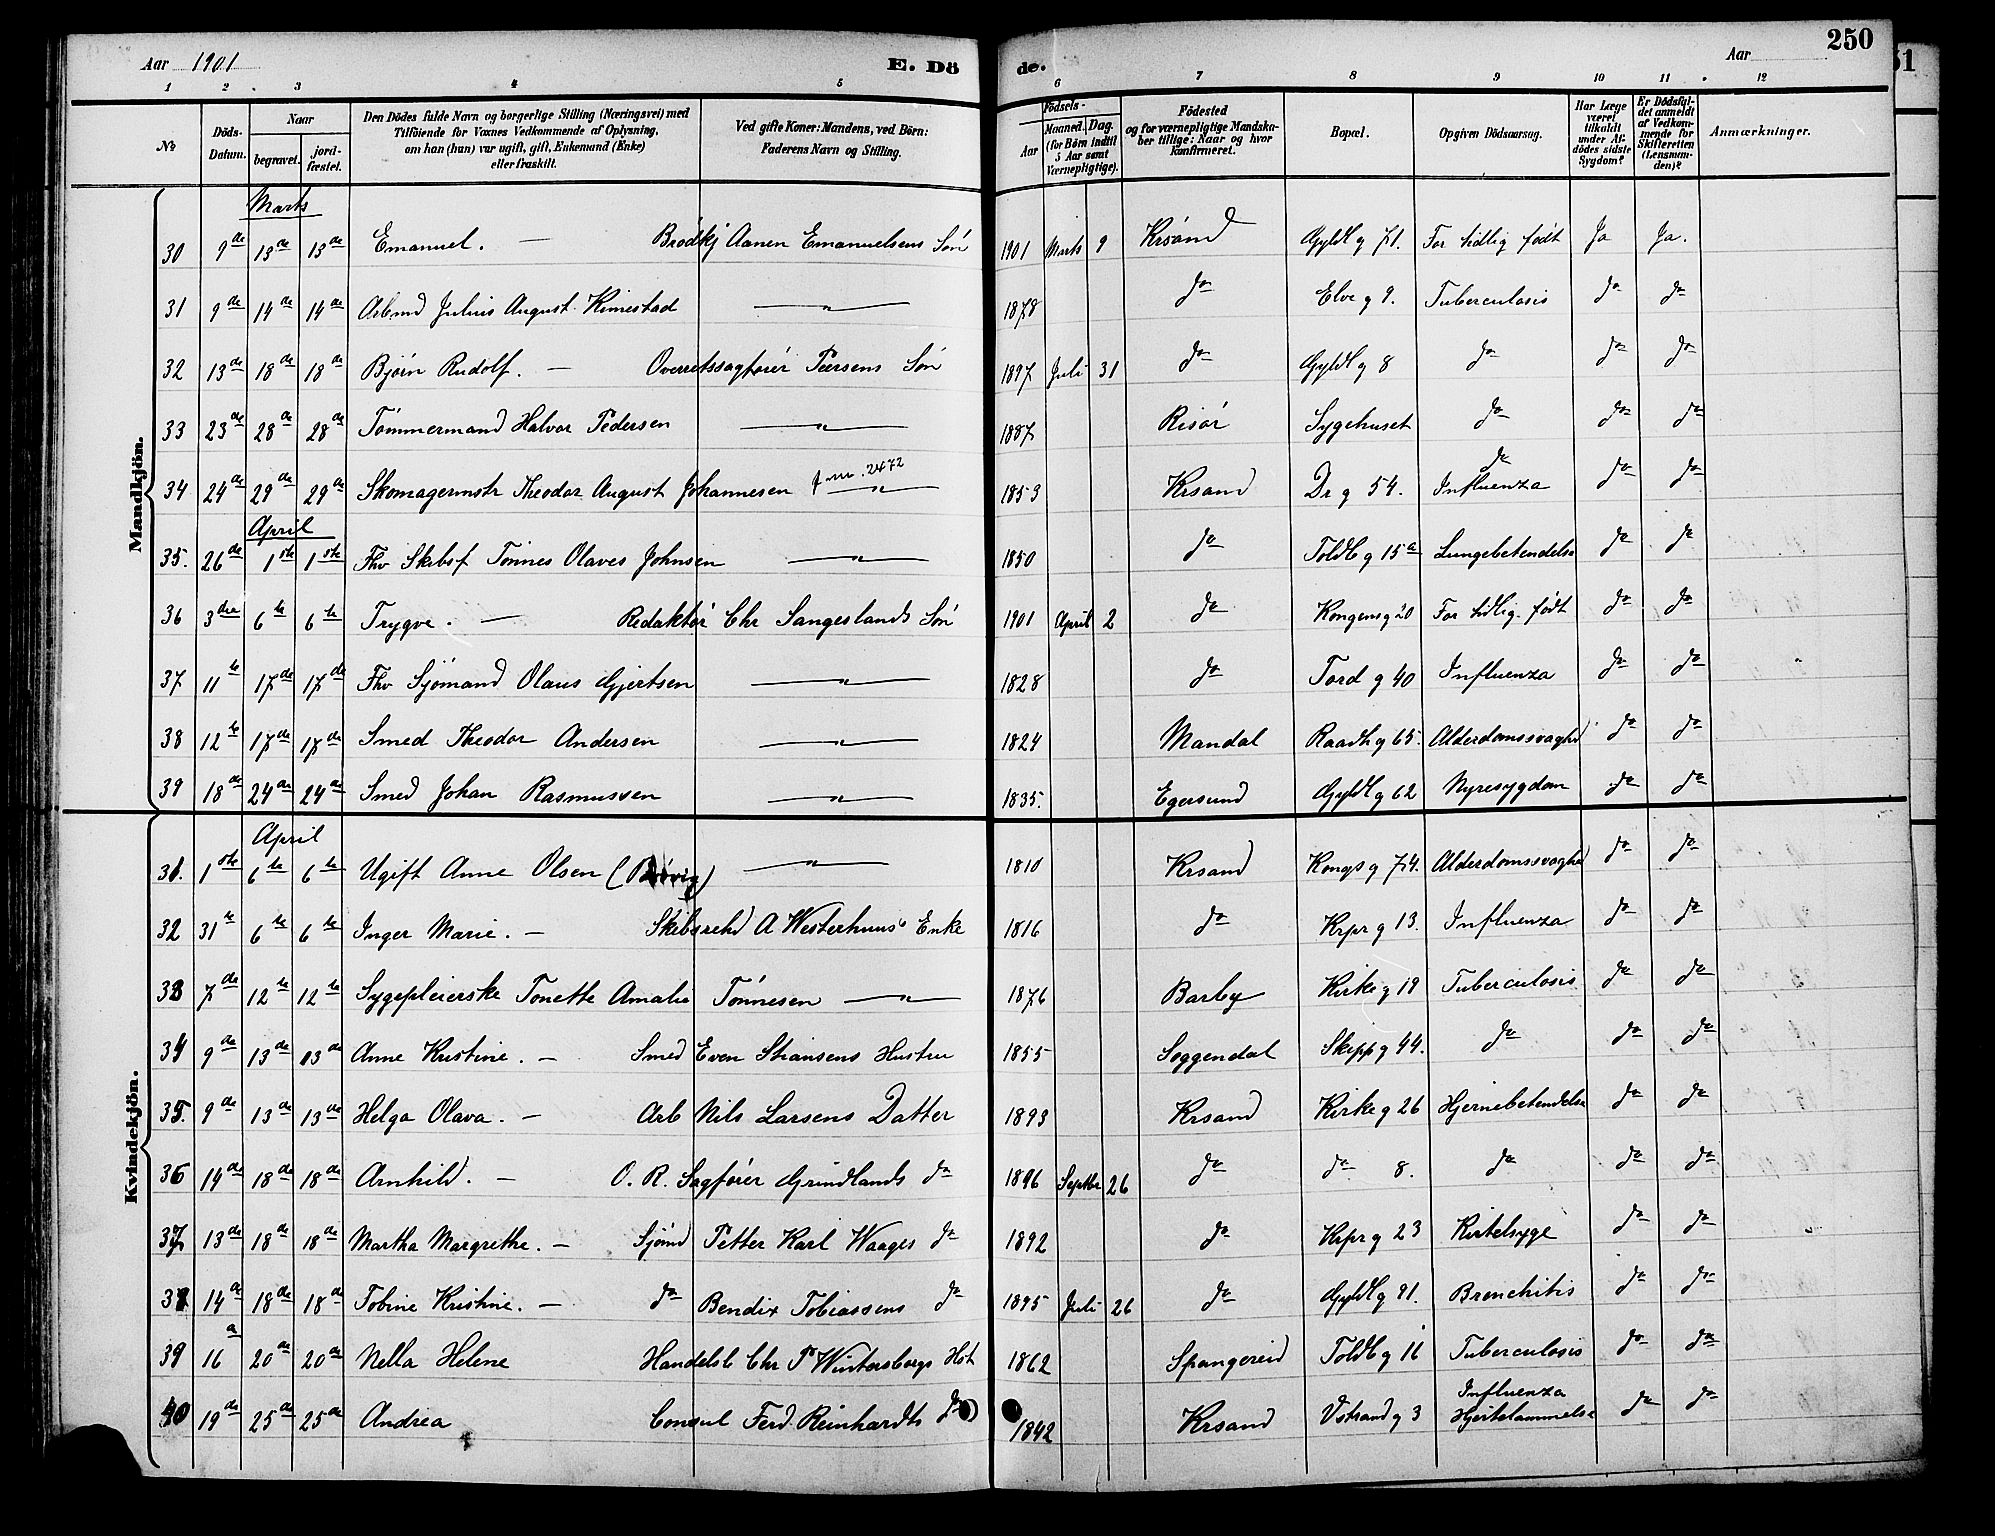 Aar 1901
E. Dö
de.
Aar
250
51
1 2 3 4 5 6 7 8 9 10 11 12
№
Döds-Datum.
Naar
begravet.
jordfæstet.
Den Dödes fulde Navn og borgerlige Stilling (Næringsvei) med
Tilföiende for Voxnes Vedkommende af Oplysning,
om han (hun) var ugift, gift, Enkemand (Enke)
eller fraskilt.
Ved gifte Koner: Mandens, ved Börn:
Faderens Navn og Stilling.
Födsels-
Aar
Maaned. Dag.
(for Börn indtil
5 Aar samt
Værnepligtige).
Födested
og for værnepligtige Mandska-
ber tillige: Naar og hvor
konfirmeret.
Bopæl.
Opgiven Dödsaarsag.
Har Læge
været
tilkaldt
under Af-
dödes sidste
Sygdom?
Er Dödsfal-
det anmeldt
af Vedkom-
mende for
Skifteretten
(Lensman-
den)?
Anmærkninger.
Mandkjön.
Marts
30 9de 13de 13de Emanuel. — Brödkj Aanen Emanuelsens Sön 1901 Marts 9 Krsand Gyldl g 71. For tidlig födt Ja Ja.
31 9de 14de 14de Arbmd Julius August Kimestad — " — 1878 do Elve g 9. Tuberculosis do do
32 13de 18de 18de Björn Rudolf. — Overretssagförer Peersens Sön 1897 Juli 31 do Gyldl g 8 do do do
33 23de 28de 28de Tömmermand Halvor Pedersen — " — 1887 Risör Sygehuset do do do
34 24de 29de 29de Skomagermstr Theodor August Johannesen f. m. 2472 — " — 1853 Krsand Dr g 54. do Influenza do do
April
35. 26de 1ste 1ste Fhv Skibsf Tönnes Olaves Johnsen — " — 1850 do Toldb g 15a Lungebetendelse do do
36 3die 6te 6te Trygve. — Redaktör Chr Sangeslands Sön 1901 April 2 do Kongens g 20 For tidlig födt do do
37 11te 17de 17de Fhv Sjömand Olaus Gjertsen — " — 1828 do Tord g 40 Influenza do do
38 12te 17de 17de Smed Theodor Andersen — " — 1824 Mandal Raadh g 65. Alderdomssvaghd do do
39 18de 24de 24de Smed Johan Rasmussen — " — 1835. Egersund Gyldl g 62 Nyresygdom do do
Kvindekjön.
April
31. 1ste 6te 6te Ugift Anne Olsen — " — 1810 Krsand Kongs g 74. Alderdomssvaghed do do
32 31te 6te 6te Inger Marie. — Skibsrehd A Westerhuus' Enke 1816 do Krpr g 13. Influenza do do
33 7de 12te 12te Sygepleierske Tonette Amalie Tönnesen — " — 1876 Barby Kirke g 19 Tuberculosis do do
34 9de 13de 13de Anne Kristine. — Smed Even Stiansens Hustru 1855 Soggendal Skipp g 44. do do do
35. 9de 13de 13de Helga Olava. — Arb Nils Larsens Datter 1893 Krsand Kirke g 26 Hjernebetendelse do do
36 14de 18de 18de Arnhild. — O. R. Sagförer Grindlands do 1896 Septbr 26 do do 8. do do do
37 13de 18de 18de Martha Margrethe. — Sjömd Petter Karl Waages do 1892 do Krpr g 23 Kirtelsyge do do
38 14de 18de 18de Tobine Kristine. — do Bendix Tobiassens do 1895 Juli 26 do Gyldl g 91. Bronchitis do do
39 16de 20de 20de Nella Helene Handelsb Chr P Wintersborgs Hst 1862 Spangereid Toldb g 16 Tuberculosis do do
40 19de 25de 25de Andrea Consul Ferd. Reinhardts do 1842 Krsand Vstrand g 3 Influenza Hjertelammelse do do